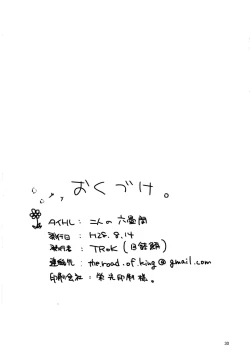 おくづけ。
タイトル：二人の六畳間
発行日：H25.8.14
発行者：TRok（日経朗）
連絡先：the.road.of.king@gmail.com
印刷会社：栄光印刷様。
30